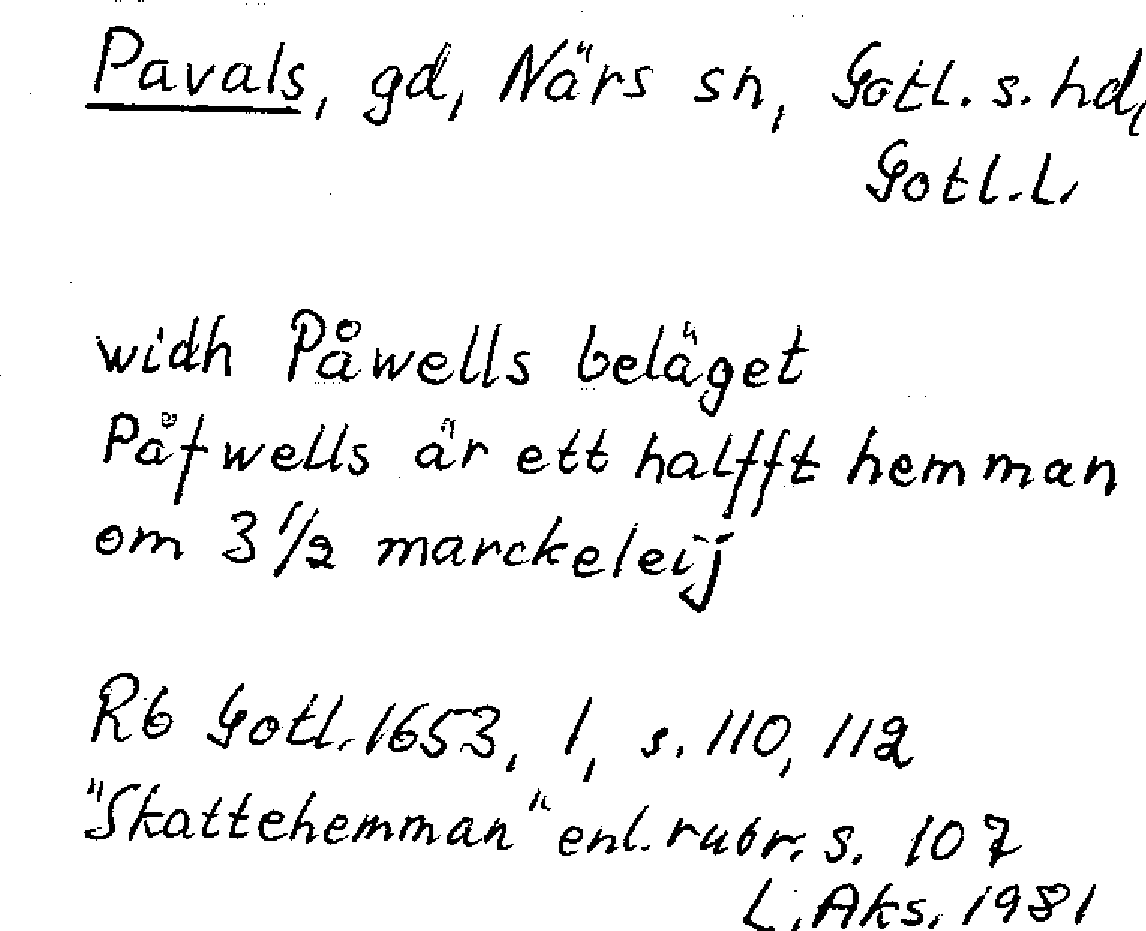 Pavals, gd, Närs sn, Gotl. s. hd,
Gotl. l.
widh Påwells beläget
Påfwells är ett halfft hemman
om 3 1/2 marckeleij
Rb Gotl. 1653, 1, s. 110, 112
"Skattehemman" enl. rubr. s. 107
L. Aks. 1981